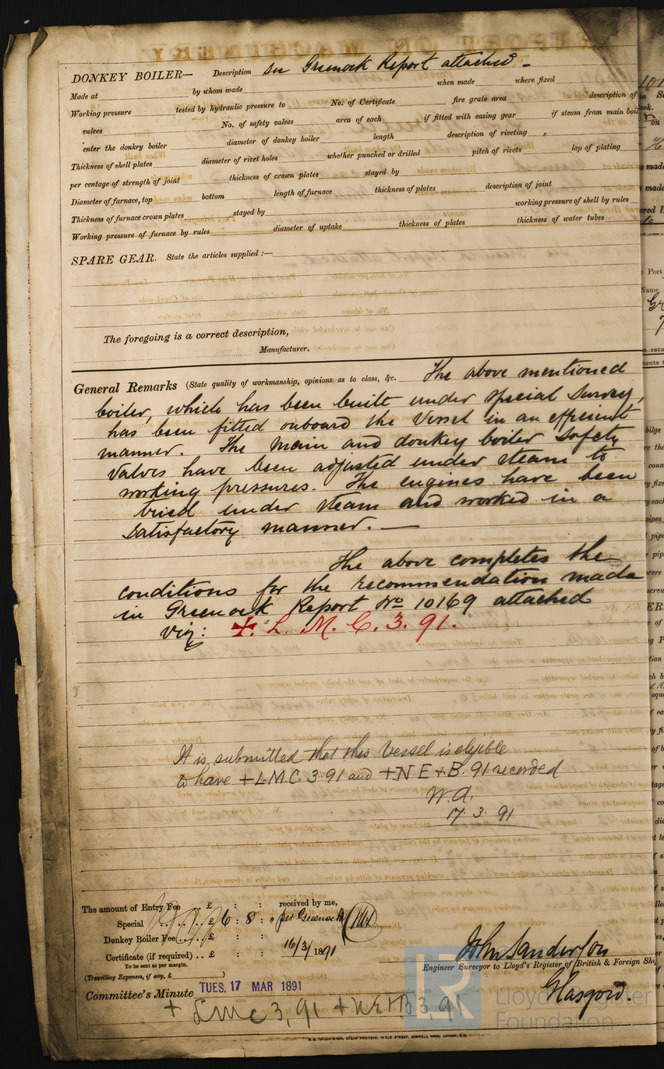 DONKEY BOILER— Description see Greenock Report attached –
Made at by whom made when made where fixed
Working pressure tested by hydraulic pressure to No. of Certificate fire grate area description of
valves No. of safety valves area of each if fitted with easing gear if steam from main boil
enter the donkey boiler diameter of donkey boiler length description of riveting
Thickness of shell plates diameter of rivet holes whether punched or drilled pitch of rivets lap of plating
per centage of strength of joint thickness of crown plates stayed by
Diameter of furnace, top bottom length of furnace thickness of plates description of joint
Thickness of furnace crown plates stayed by working pressure of shell by rules
Working pressure of furnace by rules diameter of uptake thickness of plates thickness of water tubes
SPARE GEAR. State the articles supplied :—
The foregoing is a correct description,
Manufacturer.
General Remarks (State quality of workmanship, opinions as to class, &c. The above mentioned
boiler, which has been built under special survey,
has been fitted onboard the Vessel in an efficient
manner. The main and donkey boiler safety
valves have been adjusted under steam to
working pressures. The engines have been
tried under steam and worked in a
satisfactory manner. —
The above completes the
conditions for the recommendation made
in Greenock Report No 10169 attached
viz: + L. M. C. 3. 91.
It is submitted that this Vessel is eligible
to have +LMC 3·91 and +NE&B. 91 recorded
W.A.
17·3·91
The amount of Entry Fee .. £ : : received by me,
Special .. £ 6 : 8 : per Greenock
Donkey Boiler Fee .. £ : :
Certificate (if required) .. £ : : 16/3/1891
To be sent as per margin.
(Travelling Expenses, if any, £ )
John Sanderson
Engineer Surveyor to Lloyd's Register of British & Foreign Ship
Glasgow.
Committee's Minute TUES. 17 MAR 1891
+ LMC 3, 91 + NE&B 3 91
Lloyd's Register
Foundation